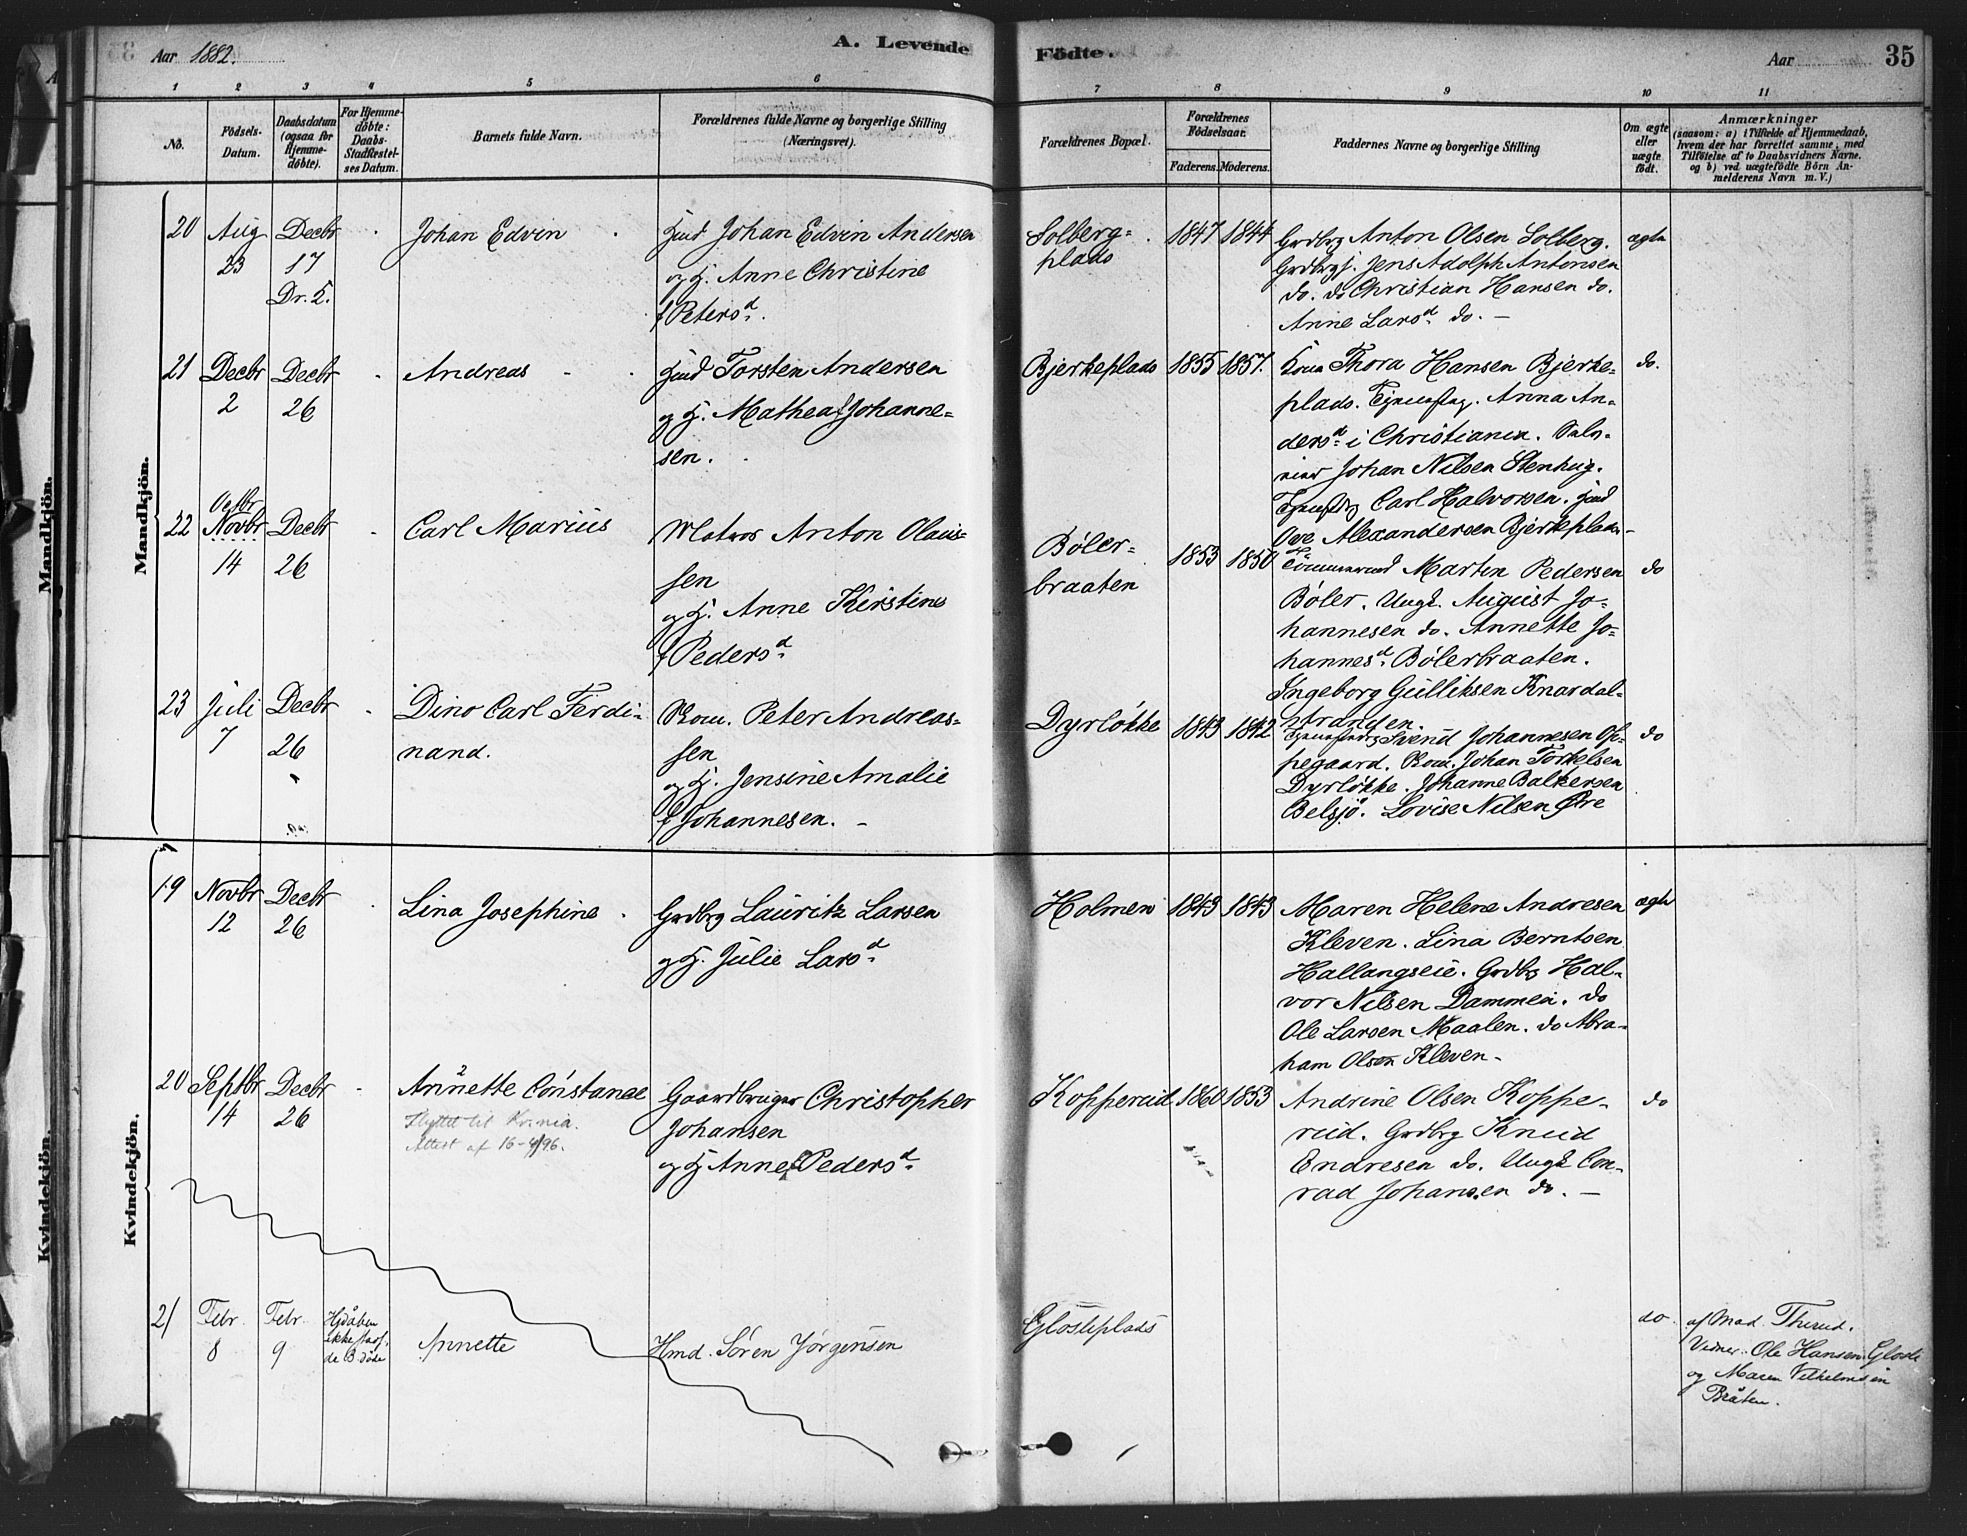 Aar 1882.
A. Levende
Födte.
Aar
35
1 2 3 4 5 6 7 8 9 10 11
No.
Födsels-
Datum.
Daabsdatum
(ogsaa for
Hjemme-
döbte).
For Hjemme-
döbte:
Daabs-
Stadfæstel-
ses Datum.
Barnets fulde Navn.
Forældrenes fulde Navne og borgerlige Stilling
(Næringsvei).
Forældrenes Bopæl.
Forældrenes
Födselsaar.
Faderens. Moderens.
Faddernes Navne og borgerlige Stilling
Om ægte
eller
uægte
födt.
Anmærkninger
(saasom: a) i Tilfælde af Hjemmedaab,
hvem der har forrettet samme, med
Tilföielse af to Daabsvidners Navne,
og b) ved uægtefödte Börn An-
melderens Navn m. V.)
Mandkjön.
Mandkjön.
20
Aug
23
Decbr
17
Dr. K.
Johan Edvin
Johan Edvin Andersen
og H. Anne Christine
f Petersd.
Solberg-
plads
1847 1844
Grdbrg Anton Olsen Solberg.
Grdbrgj. Jens Adolph Antonsen
do. do Christian Hansen do.
Anne Larsd do. -
ægte
21
Decbr
2
Decbr
26
Andreas
Torsten Andersen
og H. Mathea f Johanne-
sen.
Bjerkeplads
1855 1857.
Kone Thora Hansen Bjerke-
plads. Anna An-
dersd i Christiania.
Johan Nilsen Stenhug.
Carl Halvorsen.
Ove Alexandersen Bjerkeplads-
do.
22
Octbr
Novbr
14
Decbr
26
Carl Marius
Matros Anton Olaus-
sen
og H. Anne Kirstine
f Pedersd
Bøler-
braaten
1853 1850
Tømmermd Martin Pedersen
Bøler. Ungk. August Jo-
hannesen do. Annette Jo-
hannesd Bølerbraaten.
Ingeborg Gulliksen Knardal-
stranden.
do
23
Juli
7
Decbr
26
Dino Carl Ferdi-
nand.
Peter Andreas-
sen
og H. Jensine Amalie
f Johannesen. -
Dyrløkke
1843 1842
Svend Johannesen Op-
pegaard. Johan Torkelsen
Dyrløkke. Johanne Balkersen
Belsjø. Lovise Nilsen Øre
do
Kvindekjön.
Kvindekjön.
19
Novbr
12
Decbr
26
Lina Josephine
Grdbrg Lauritz Larsen
og H. Julie Larsd
Holmen
1843 1843
Maren Helene Andresen
Kleven. Lina Berntsen
Hallangseie. Grdbrg Hal-
vor Nilsen Dammen. do
Ole Larsen Maalen. do Abra-
ham Olsen Kleven-
ægte
20
Septbr
14
Decbr
26
Annette Constance
2
Flyttet til Kr.nia.
Attest af 16-4/96.
Gaardbruger Christopher
Johansen
og H Anne f Pedersd
Kopperud
1860 1853
Andrine Olsen Koppe-
rud. Grdbrg Knud
Endresen do. Ungk Con-
rad Johansen do. -
do
21
Febr
8
Febr
9
Hjdåben
ikke stadf.
da B. døde
Annette
Hmd. Søren Jørgensen
Glosliplads
do
af Mad. Therud.
Vidner. Ole Hansen Glosli
og Maren Vilhelmsen
Bråten.